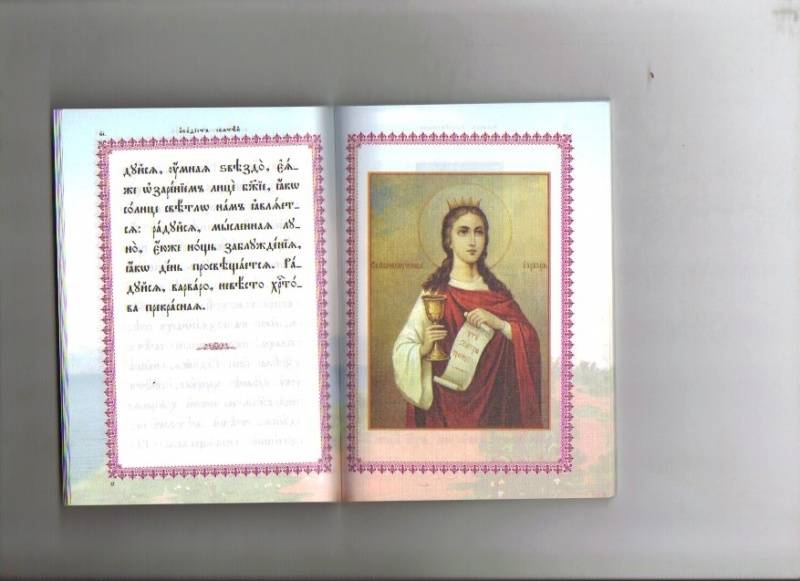 дꙋ́йсѧ, ᲂу҆́мнаѧ ѕвѣздо̀, є҆ѧ́-
же ѡ҆заре́нїемъ лицѐ бж҃їе, ꙗ҆́кѡ
со́лнце свѣ́тлѡ на́мъ ꙗ҆влѧ́ет-
сѧ: ра́дꙋйсѧ, мы́сленнаѧ лꙋ-
но̀, є҆́юже но́щь заблꙋжде́нїѧ,
ꙗ҆́кѡ де́нь просвѣща́етсѧ. Ра́-
дꙋйсѧ, варва́ро, невѣ́сто хрⷭ҇то́-
ва прекра́снаѧ.